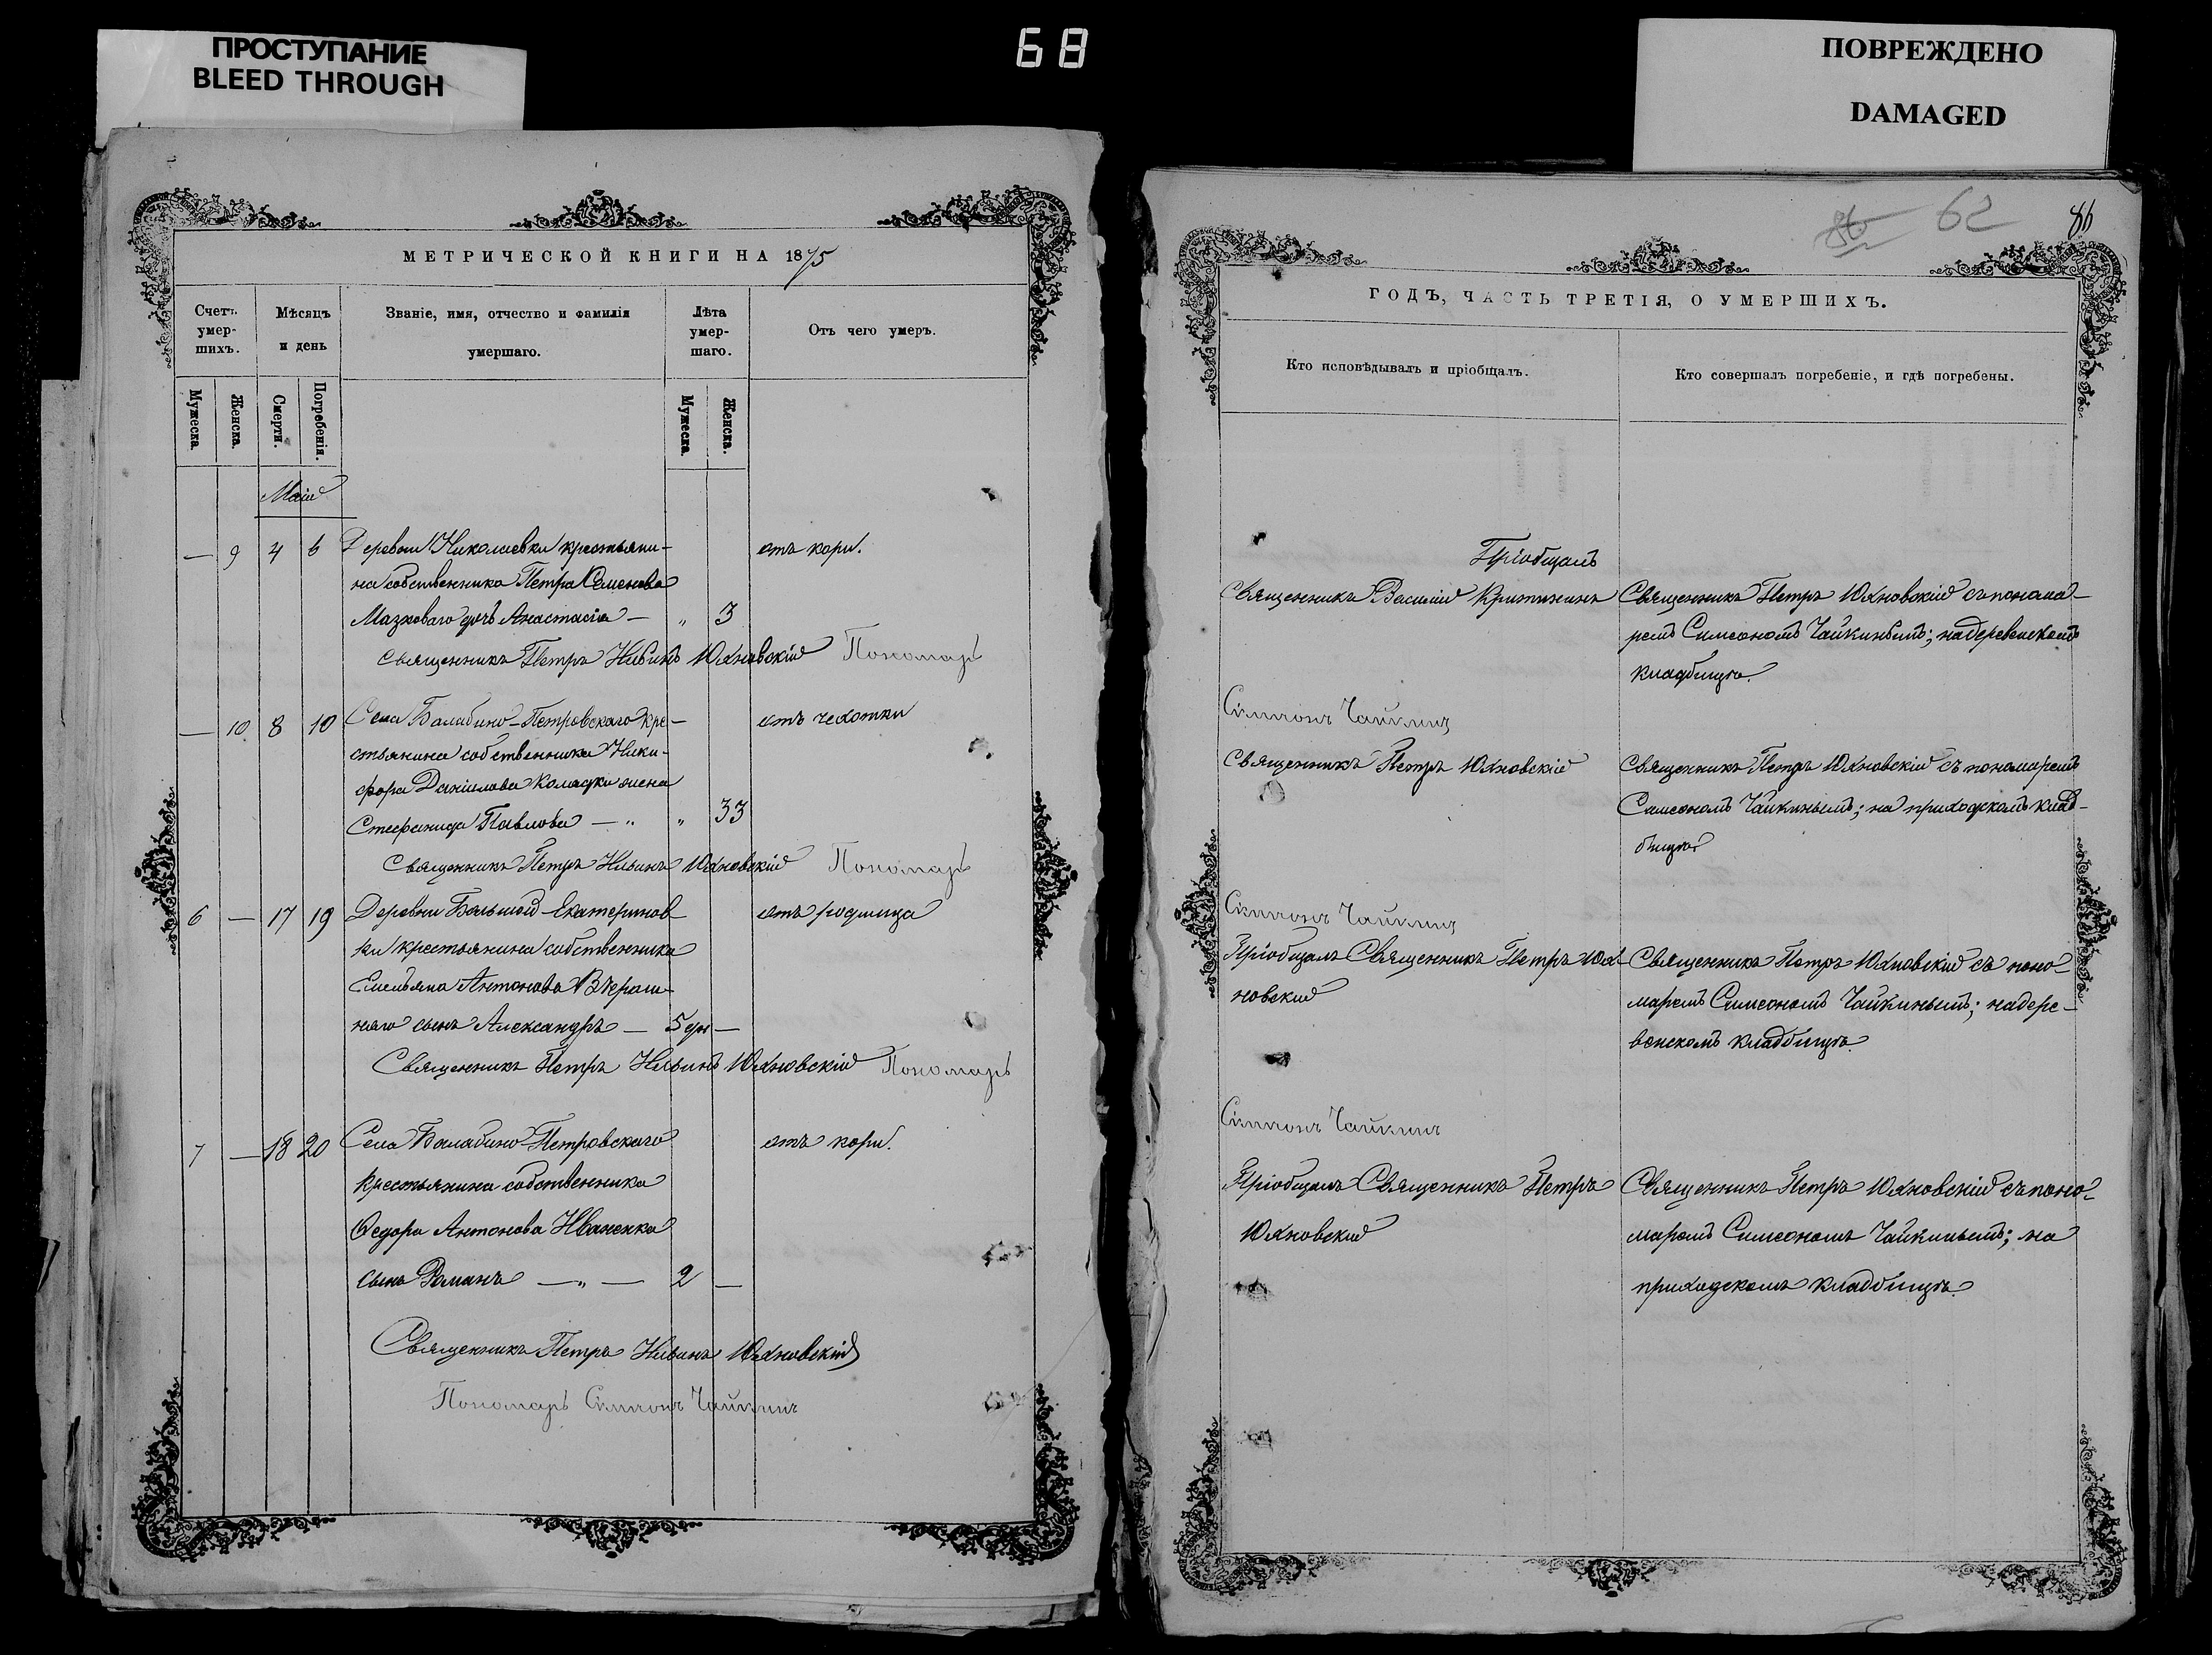 ПРОСТУПАНИЕ
BLEED THROUGH
68
ПОВРЕЖДЕНО
DAMAGED
МЕТРИЧЕСКОЙ КНИГИ НА 1875
Счетъ умер-шихъ.
Мѣсяцъ и день
Званіе, имя, отчество и фамилія умершаго.
Лѣта умер-шаго.
Отъ чего умеръ.
Мужеска.
Женска.
Смерти.
Погребенія.
Мужеска.
Женска.
Маій
— 9 4 6 Деревни Николаевки крестьяни- отъ кори.
на собственника Петра Семенова
Мазковаго дочь Анастасія — „ 3
Священникъ Петръ Ильинъ Юхновскій Пономарь
— 10 8 10 Села Балабино-Петровскаго кре- отъ чехотки
стьянина собственника Ники-
фора Даніилова Коляды жена
Стефанида Павлова — „ „ 33
Священникъ Петръ Ильинъ Юхновскій Пономарь
6 — 17 19 Деревни Большой-Екатеринов- отъ родимца
ки крестьянина собственника
Емельяна Антонова
сынъ Александръ — 5 дн —
Священникъ Петръ Ильинъ Юхновскій Пономарь
7 — 18 20 Села Балабино-Петровскаго отъ кори.
крестьянина собственника
Ѳедора Антонова Иваненка
сынъ Романъ — „ — 2 —
Священникъ Петръ Ильинъ Юхновскій
Пономарь Симеонъ Чайкинъ
86 62 86
ГОДЪ, ЧАСТЬ ТРЕТІЯ, О УМЕРШИХЪ.
Кто исповѣдывалъ и пріобщалъ.
Кто совершалъ погребеніе, и гдѣ погребены.
Пріобщалъ
Священникъ Василій Священникъ Петръ Юхновскій съ понама-
ремъ Симеономъ Чайкинымъ; на деревенскомъ
кладбищѣ.
Симеонъ Чайкинъ
Священникъ Петръ Юхновскій Священникъ Петръ Юхновскій съ пономаремъ
Симеономъ Чайкинымъ; на приходскомъ клад-
бищѣ
Симеонъ Чайкинъ
Пріобщалъ Священникъ Петръ Юх- Священникъ Петръ Юхновскій съ поно-
новскій маремъ Симеономъ Чайкинымъ; на дере-
венскомъ кладбищѣ.
Симеонъ Чайкинъ
Пріобщалъ Священникъ Петръ Священникъ Петръ Юхновскій съ поно-
Юхновскій маремъ Симеономъ Чайкинымъ; на
приходскомъ кладбищѣ.